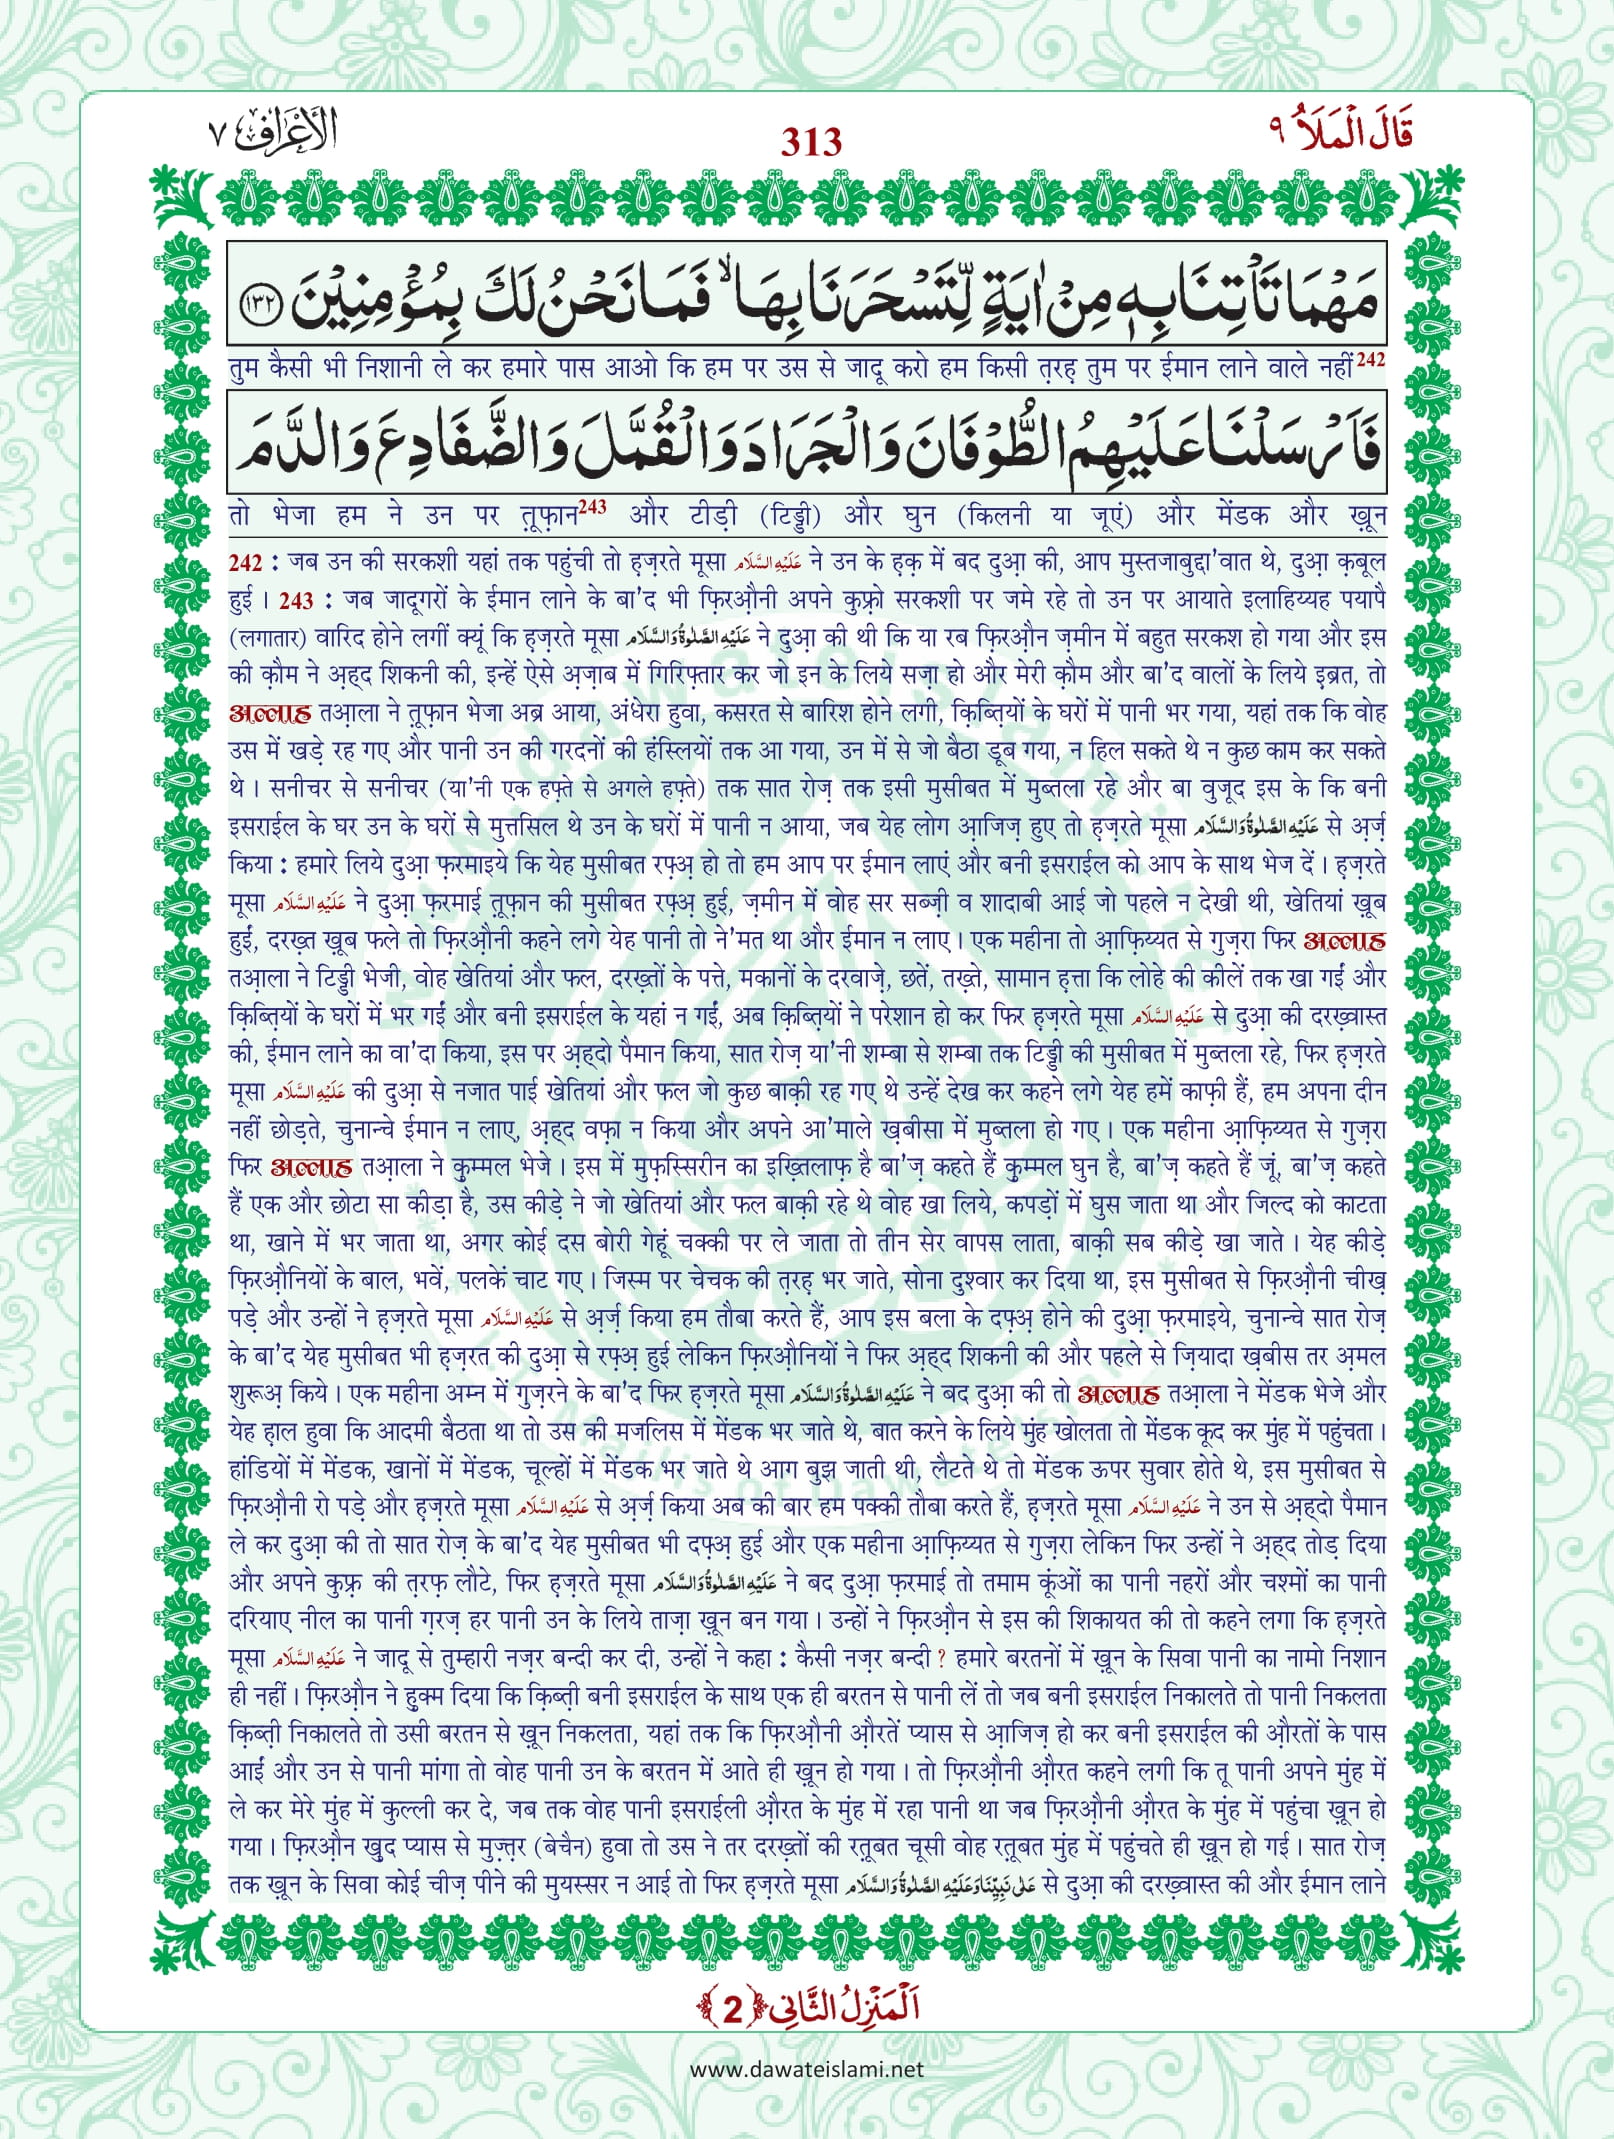 الأعراف ٧
313
قَالَ الْمَلَاُ ٩
مَهْمَا تَاْتِنَا بِهٖ مِنْ اٰيَةٍ لِّتَسْحَرَنَا بِهَا ۙ فَمَا نَحْنُ لَكَ بِمُؤْمِنِيْنَ ﴿١٣٢﴾
तुम कैसी भी निशानी ले कर हमारे पास आओ कि हम पर उस से जादू करो हम किसी त़रह़ तुम पर ईमान लाने वाले नहीं242
فَاَرْسَلْنَا عَلَيْهِمُ الطُّوْفَانَ وَالْجَرَادَ وَالْقُمَّلَ وَالضَّفَادِعَ وَالدَّمَ
तो भेजा हम ने उन पर त़ूफ़ान243 और टीड़ी (टिड्डी) और घुन (किलनी या जूएं) और मेंडक और ख़ून
242 : जब उन की सरकशी यहां तक पहुंची तो ह़ज़रते मूसा عَلَيْهِ السَّلَام ने उन के ह़क़ में बद दुआ़ की, आप मुस्तजाबुद्दा'वात थे, दुआ़ क़बूल
हुई । 243 : जब जादूगरों के ईमान लाने के बा'द भी फ़िरऔ़नी अपने कुफ़्रो सरकशी पर जमे रहे तो उन पर आयाते इलाहिय्यह पयापै
(लगातार) वारिद होने लगीं क्यूं कि ह़ज़रते मूसा عَلَيْهِ الصَّلٰوةُ وَالسَّلَام ने दुआ़ की थी कि या रब फ़िरऔ़न ज़मीन में बहुत सरकश हो गया और इस
की क़ौम ने अ़ह्द शिकनी की, इन्हें ऐसे अ़ज़ाब में गिरिफ़्तार कर जो इन के लिये सज़ा हो और मेरी क़ौम और बा'द वालों के लिये इ़ब्रत, तो
अल्लाह तआ़ला ने त़ूफ़ान भेजा अब्र आया, अंधेरा हुवा, कसरत से बारिश होने लगी, क़िब्त़ियों के घरों में पानी भर गया, यहां तक कि वोह
उस में खड़े रह गए और पानी उन की गरदनों की हंस्लियों तक आ गया, उन में से जो बैठा डूब गया, न हिल सकते थे न कुछ काम कर सकते
थे । सनीचर से सनीचर (या'नी एक हफ़्ते से अगले हफ़्ते) तक सात रोज़ तक इसी मुसीबत में मुब्तला रहे और बा वुजूद इस के कि बनी
इसराईल के घर उन के घरों से मुत्तसिल थे उन के घरों में पानी न आया, जब येह लोग आजिज़ हुए तो ह़ज़रते मूसा عَلَيْهِ الصَّلٰوةُ وَالسَّلَام से अ़र्ज़
किया : हमारे लिये दुआ़ फ़रमाइये कि येह मुसीबत रफ़्अ़ हो तो हम आप पर ईमान लाएं और बनी इसराईल को आप के साथ भेज दें । ह़ज़रते
मूसा عَلَيْهِ السَّلَام ने दुआ़ फ़रमाई त़ूफ़ान की मुसीबत रफ़्अ़ हुई, ज़मीन में वोह सर सब्ज़ी व शादाबी आई जो पहले न देखी थी, खेतियां ख़ूब
हुईं, दरख़्त ख़ूब फले तो फ़िरऔ़नी कहने लगे येह पानी तो ने'मत था और ईमान न लाए । एक महीना तो आ़फ़िय्यत से गुज़रा फिर अल्लाह
तआ़ला ने टिड्डी भेजी, वोह खेतियां और फल, दरख़्तों के पत्ते, मकानों के दरवाज़े, छतें, तख़्ते, सामान ह़त्ता कि लोहे की कीलें तक खा गईं और
क़िब्त़ियों के घरों में भर गईं और बनी इसराईल के यहां न गईं, अब क़िब्त़ियों ने परेशान हो कर फिर ह़ज़रते मूसा عَلَيْهِ السَّلَام से दुआ़ की दरख़्वास्त
की, ईमान लाने का वा'दा किया, इस पर अ़ह्दो पैमान किया, सात रोज़ या'नी शम्बा से शम्बा तक टिड्डी की मुसीबत में मुब्तला रहे, फिर ह़ज़रते
मूसा عَلَيْهِ السَّلَام की दुआ़ से नजात पाई खेतियां और फल जो कुछ बाक़ी रह गए थे उन्हें देख कर कहने लगे येह हमें काफ़ी हैं, हम अपना दीन
नहीं छोड़ते, चुनान्चे ईमान न लाए, अ़ह्द वफ़ा न किया और अपने आ'माले ख़बीसा में मुब्तला हो गए । एक महीना आ़फ़िय्यत से गुज़रा
फिर अल्लाह तआ़ला ने क़ुम्मल भेजे । इस में मुफ़स्सिरीन का इख़्तिलाफ़ है बा'ज़ कहते हैं क़ुम्मल घुन है, बा'ज़ कहते हैं जूं, बा'ज़ कहते
हैं एक और छोटा सा कीड़ा है, उस कीड़े ने जो खेतियां और फल बाक़ी रहे थे वोह खा लिये, कपड़ों में घुस जाता था और जिल्द को काटता
था, खाने में भर जाता था, अगर कोई दस बोरी गेहूं चक्की पर ले जाता तो तीन सेर वापस लाता, बाक़ी सब कीड़े खा जाते । येह कीड़े
फ़िरऔ़नियों के बाल, भवें, पलकें चाट गए । जिस्म पर चेचक की त़रह़ भर जाते, सोना दुश्वार कर दिया था, इस मुसीबत से फ़िरऔ़नी चीख़
पड़े और उन्हों ने ह़ज़रते मूसा عَلَيْهِ السَّلَام से अ़र्ज़ किया हम तौबा करते हैं, आप इस बला के दफ़्अ़ होने की दुआ़ फ़रमाइये, चुनान्चे सात रोज़
के बा'द येह मुसीबत भी ह़ज़रत की दुआ़ से रफ़्अ़ हुई लेकिन फ़िरऔ़नियों ने फिर अ़ह्द शिकनी की और पहले से ज़ियादा ख़बीस तर अ़मल
शुरूअ़ किये । एक महीना अम्न में गुज़रने के बा'द फिर ह़ज़रते मूसा عَلَيْهِ الصَّلٰوةُ وَالسَّلَام ने बद दुआ़ की तो अल्लाह तआ़ला ने मेंडक भेजे और
येह ह़ाल हुवा कि आदमी बैठता था तो उस की मजलिस में मेंडक भर जाते थे, बात करने के लिये मुंह खोलता तो मेंडक कूद कर मुंह में पहुंचता ।
हांडियों में मेंडक, खानों में मेंडक, चूल्हों में मेंडक भर जाते थे आग बुझ जाती थी, लैटते थे तो मेंडक ऊपर सुवार होते थे, इस मुसीबत से
फ़िरऔ़नी रो पड़े और ह़ज़रते मूसा عَلَيْهِ السَّلَام से अ़र्ज़ किया अब की बार हम पक्की तौबा करते हैं, ह़ज़रते मूसा عَلَيْهِ السَّلَام ने उन से अ़ह्दो पैमान
ले कर दुआ़ की तो सात रोज़ के बा'द येह मुसीबत भी दफ़्अ़ हुई और एक महीना आ़फ़िय्यत से गुज़रा लेकिन फिर उन्हों ने अ़ह्द तोड़ दिया
और अपने कुफ़्र की त़रफ़ लौटे, फिर ह़ज़रते मूसा عَلَيْهِ الصَّلٰوةُ وَالسَّلَام ने बद दुआ़ फ़रमाई तो तमाम कूंओं का पानी नहरों और चश्मों का पानी
दरियाए नील का पानी ग़रज़ हर पानी उन के लिये ताज़ा ख़ून बन गया । उन्हों ने फ़िरऔ़न से इस की शिकायत की तो कहने लगा कि ह़ज़रते
मूसा عَلَيْهِ السَّلَام ने जादू से तुम्हारी नज़र बन्दी कर दी, उन्हों ने कहा : कैसी नज़र बन्दी ? हमारे बरतनों में ख़ून के सिवा पानी का नामो निशान
ही नहीं । फ़िरऔ़न ने ह़ुक्म दिया कि क़िब्त़ी बनी इसराईल के साथ एक ही बरतन से पानी लें तो जब बनी इसराईल निकालते तो पानी निकलता
क़िब्त़ी निकालते तो उसी बरतन से ख़ून निकलता, यहां तक कि फ़िरऔ़नी औ़रतें प्यास से आ़जिज़ हो कर बनी इसराईल की औ़रतों के पास
आईं और उन से पानी मांगा तो वोह पानी उन के बरतन में आते ही ख़ून हो गया । तो फ़िरऔ़नी औ़रत कहने लगी कि तू पानी अपने मुंह में
ले कर मेरे मुंह में कुल्ली कर दे, जब तक वोह पानी इसराईली औ़रत के मुंह में रहा पानी था जब फ़िरऔ़नी औ़रत के मुंह में पहुंचा ख़ून हो
गया । फ़िरऔ़न ख़ुद प्यास से मुज़्त़र (बेचैन) हुवा तो उस ने तर दरख़्तों की रत़ूबत चूसी वोह रत़ूबत मुंह में पहुंचते ही ख़ून हो गई । सात रोज़
तक ख़ून के सिवा कोई चीज़ पीने की मुयस्सर न आई तो फिर ह़ज़रते मूसा عَلٰى نَبِيِّنَا وَعَلَيْهِ الصَّلٰوةُ وَالسَّلَام से दुआ़ की दरख़्वास्त की और ईमान लाने
اَلْمَنْزِلُ الثَّانِى ﴿2﴾
www.dawateislami.net